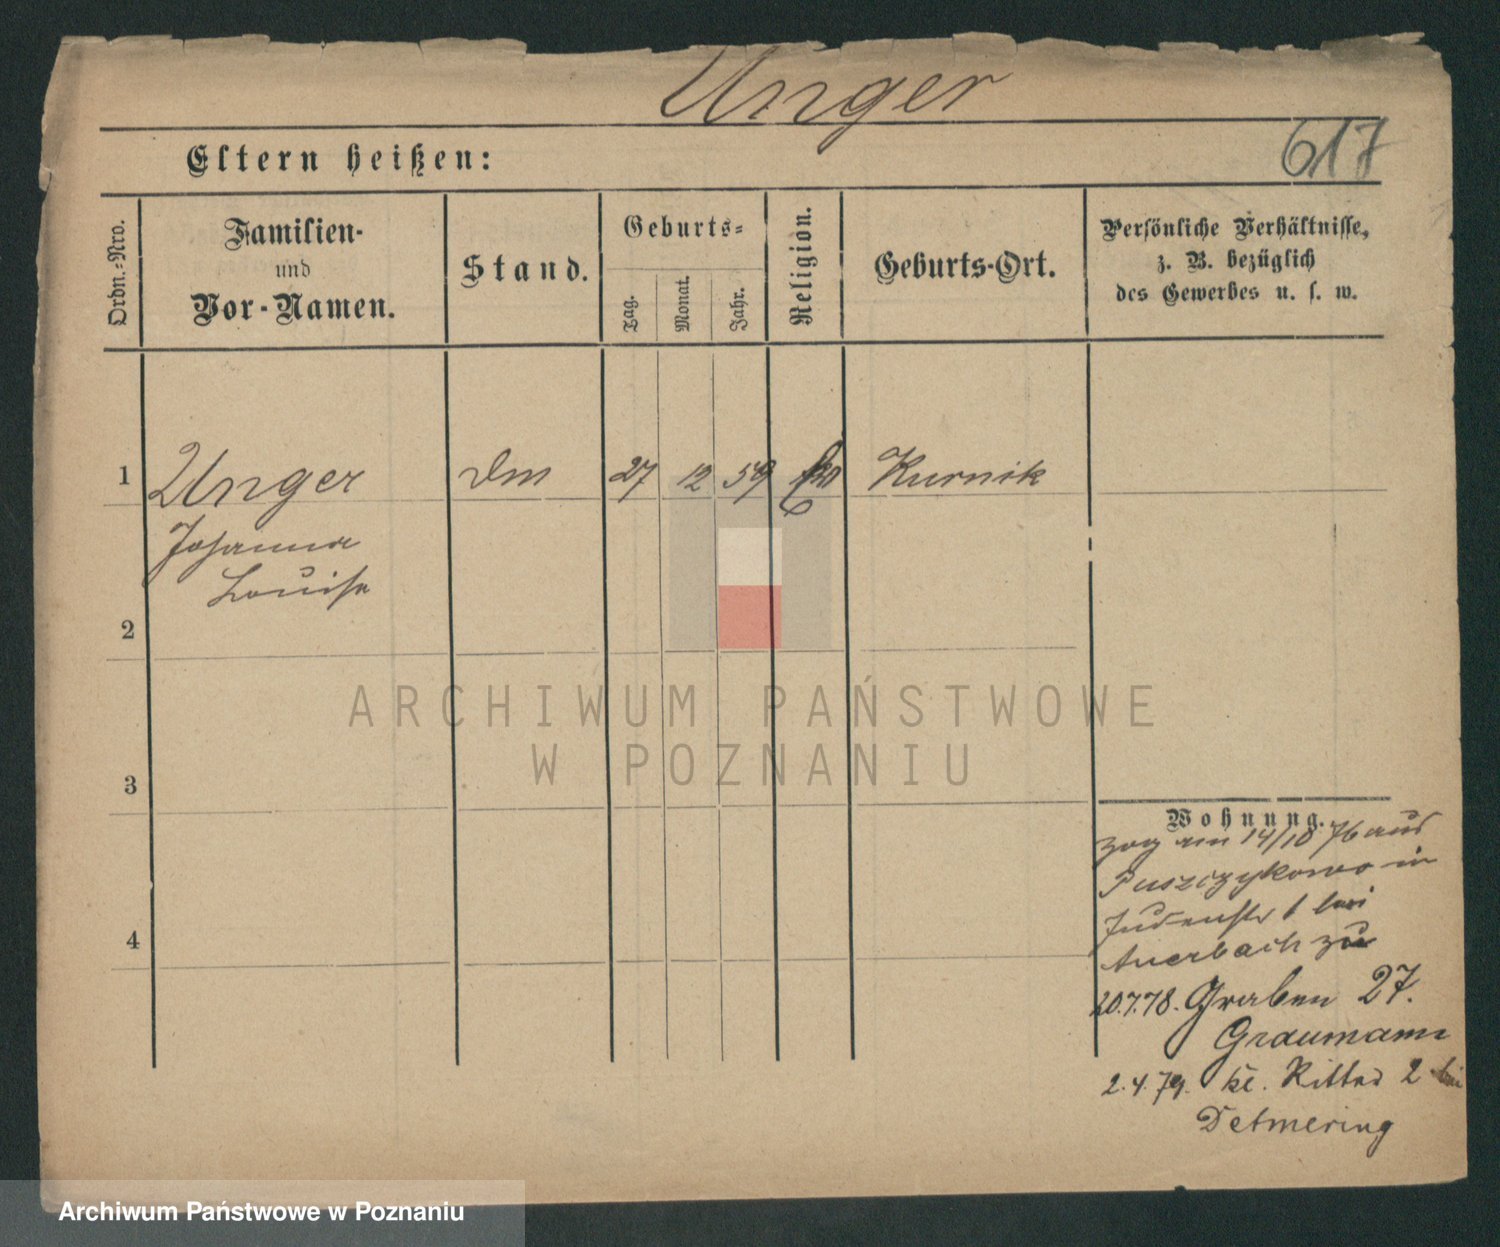 Unger
617
Eltern heißen:
Ordn.-Nro.
Familien-
und
Vor-Namen.
Stand.
Geburts-
Tag.
Monat.
Jahr.
Religion.
Geburts-Ort.
Persönliche Verhältnisse,
z. B. bezüglich
des Gewerbes u. s. w.
1
Unger
27
12
59
Kurnik
Johanna
Louise
2
ARCHIWUM PAŃSTWOWE
W POZNANIU
3
Wohnung.
zog am 14/10 76 aus
Puszczykowo in
Judenstr 1 bei
Auerbach zu
4
20.7.78. Graben 27.
Graumann
2.4.79. kl. Ritter 2 bei
Detmering
Archiwum Państwowe w Poznaniu